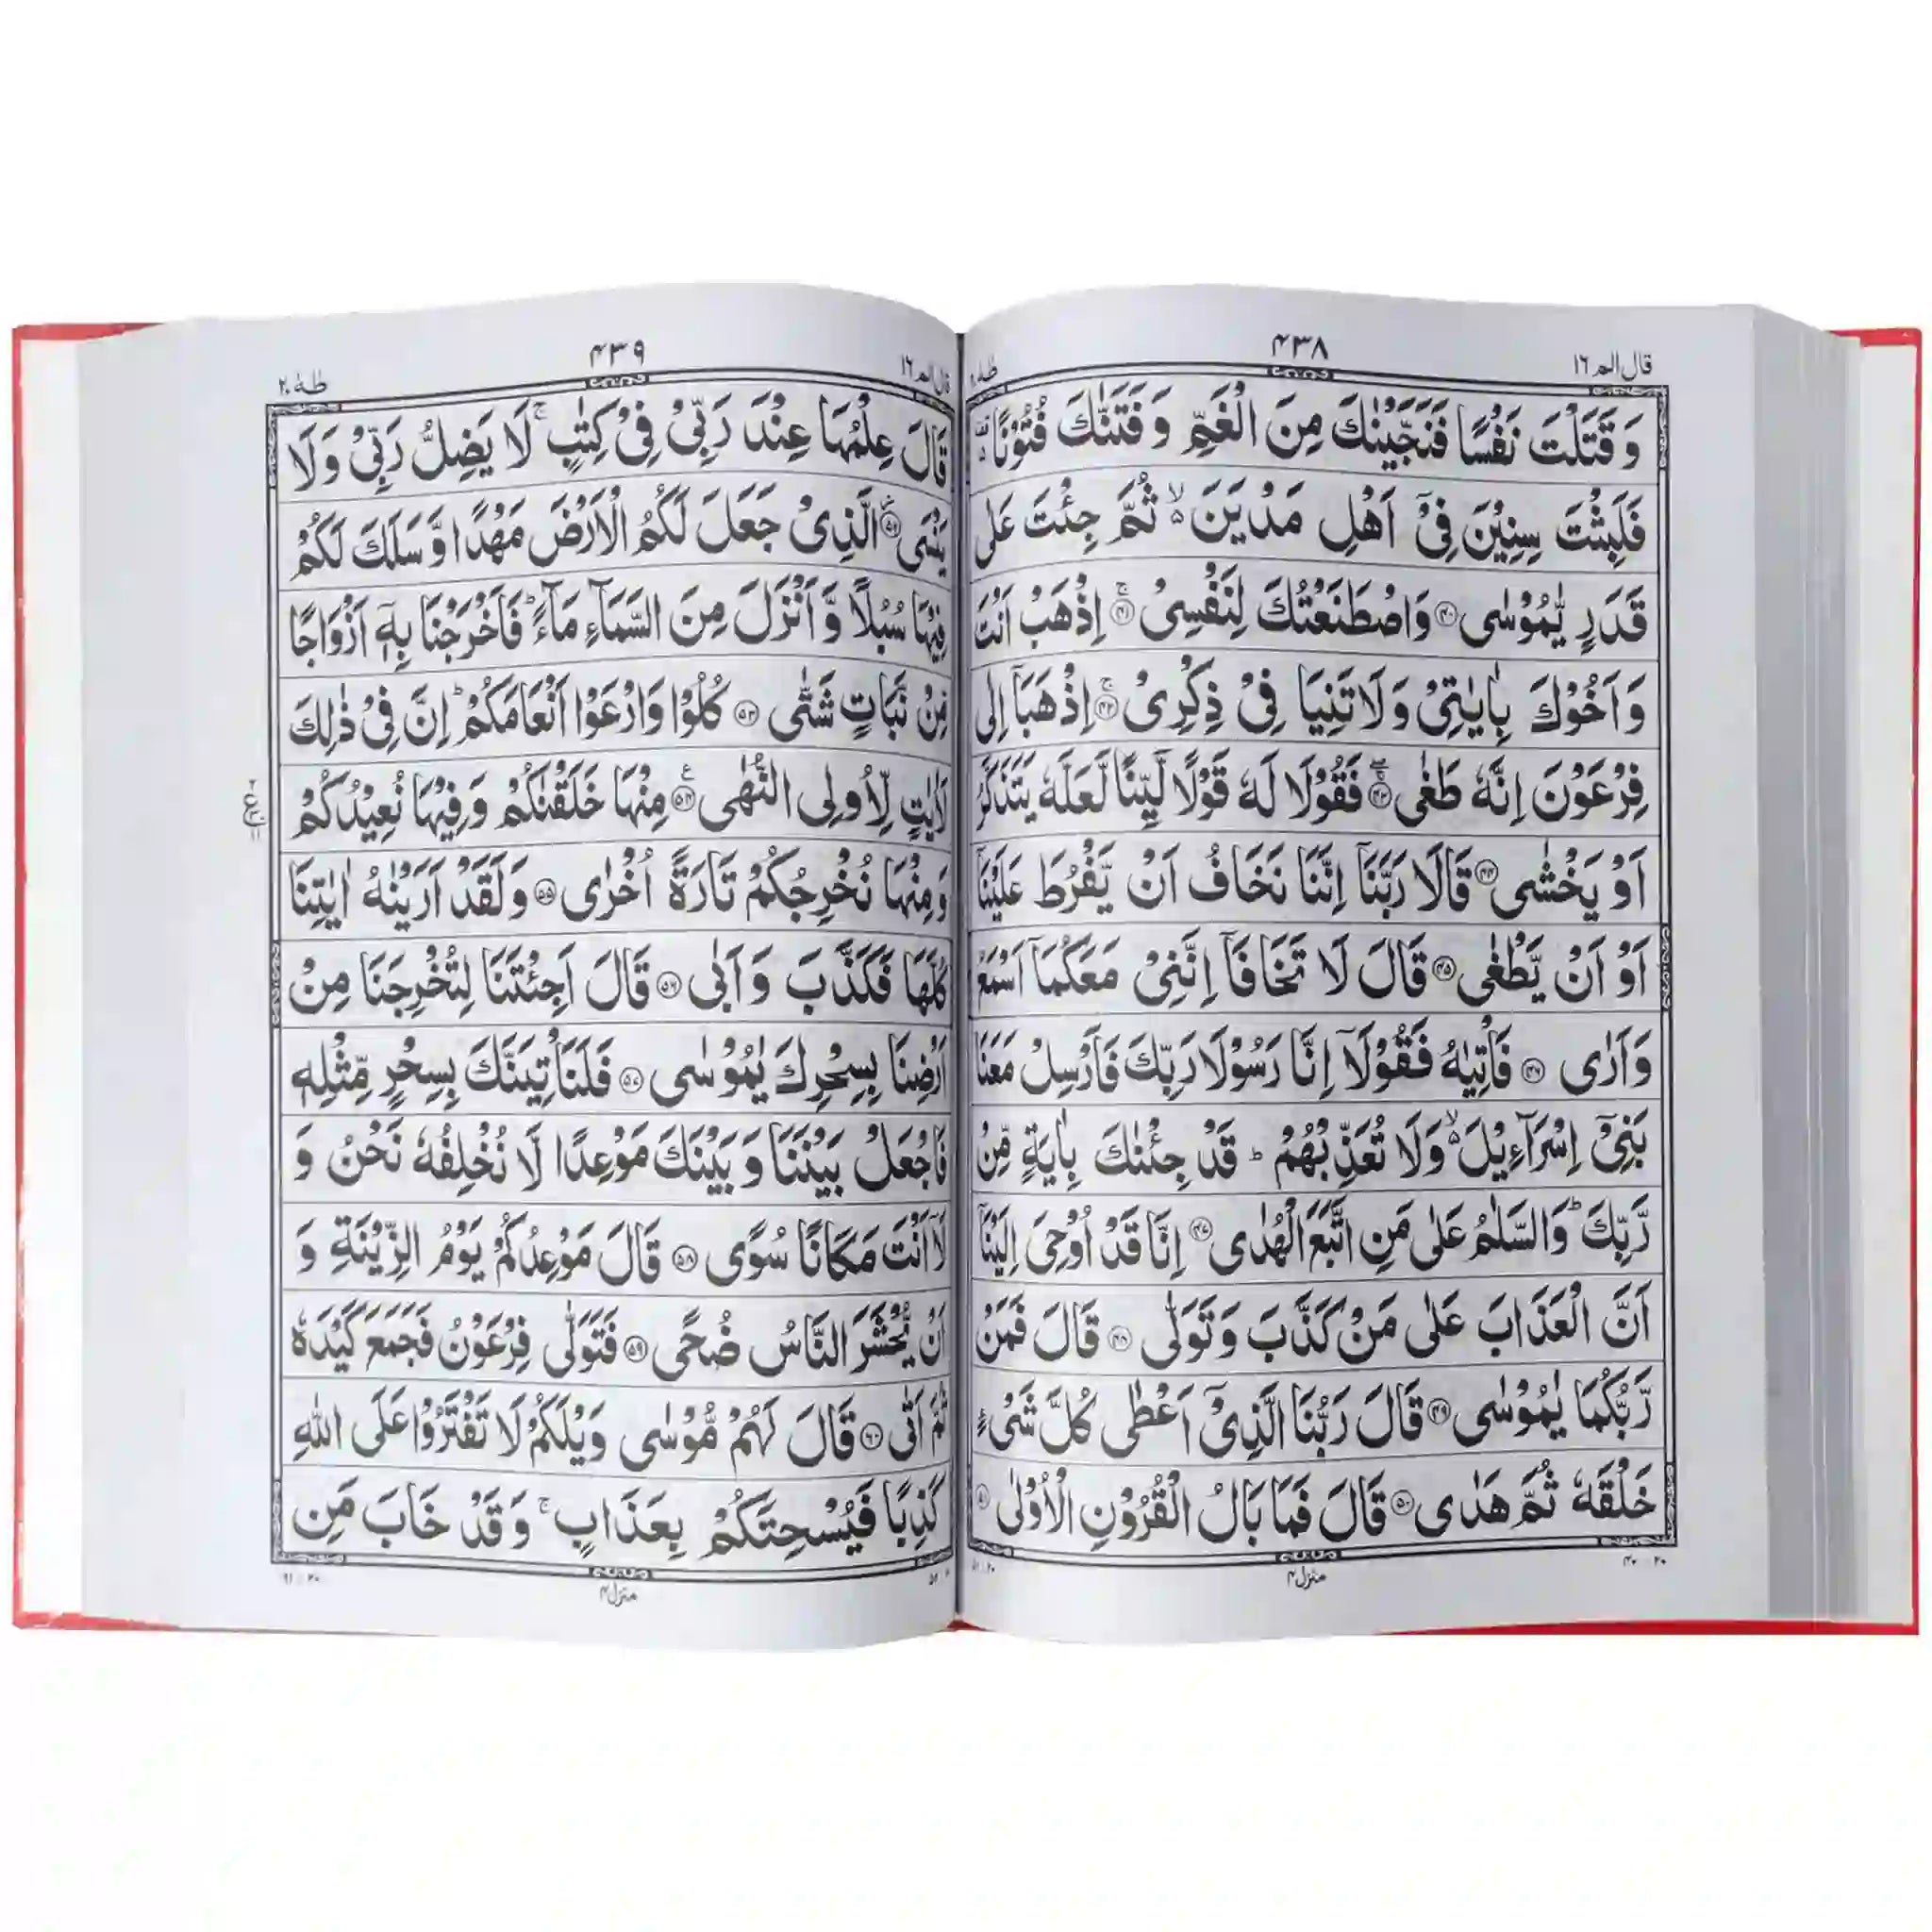 قال الم ١٦
٤٣٨
طٰهٰ ٢٠
وَ قَتَلْتَ نَفْسًا فَنَجَّيْنٰكَ مِنَ الْغَمِّ وَ فَتَنّٰكَ فُتُوْنًا ۬
فَلَبِثْتَ سِنِيْنَ فِيْۤ اَهْلِ مَدْيَنَ ۙ۬ ثُمَّ جِئْتَ عَلٰى
قَدَرٍ يّٰمُوْسٰى ﴿۴۰﴾ وَاصْطَنَعْتُكَ لِنَفْسِيْ ۚ﴿۴۱﴾ اِذْهَبْ اَنْتَ
وَ اَخُوْكَ بِاٰيٰتِيْ وَلَا تَنِيَا فِيْ ذِكْرِيْ ۚ﴿۴۲﴾ اِذْهَبَاۤ اِلٰى
فِرْعَوْنَ اِنَّهٗ طَغٰى ۚۖ﴿۴۳﴾ فَقُوْلَا لَهٗ قَوْلًا لَّيِّنًا لَّعَلَّهٗ يَتَذَكَّرُ
اَوْ يَخْشٰى ﴿۴۴﴾ قَالَا رَبَّنَاۤ اِنَّنَا نَخَافُ اَنْ يَّفْرُطَ عَلَيْنَاۤ
اَوْ اَنْ يَّطْغٰى ﴿۴۵﴾ قَالَ لَا تَخَافَاۤ اِنَّنِيْ مَعَكُمَاۤ اَسْمَعُ
وَ اَرٰى ﴿۴۶﴾ فَاْتِيٰهُ فَقُوْلَاۤ اِنَّا رَسُوْلَا رَبِّكَ فَاَرْسِلْ مَعَنَا
بَنِيْۤ اِسْرَآءِيْلَ ۙ۬ وَلَا تُعَذِّبْهُمْ ؕ قَدْ جِئْنٰكَ بِاٰيَةٍ مِّنْ
رَّبِّكَ ؕ وَالسَّلٰمُ عَلٰى مَنِ اتَّبَعَ الْهُدٰى ﴿۴۷﴾ اِنَّا قَدْ اُوْحِيَ اِلَيْنَاۤ
اَنَّ الْعَذَابَ عَلٰى مَنْ كَذَّبَ وَ تَوَلّٰى ﴿۴۸﴾ قَالَ فَمَنْ
رَّبُّكُمَا يٰمُوْسٰى ﴿۴۹﴾ قَالَ رَبُّنَا الَّذِيْۤ اَعْطٰى كُلَّ شَيْءٍ
خَلْقَهٗ ثُمَّ هَدٰى ﴿۵۰﴾ قَالَ فَمَا بَالُ الْقُرُوْنِ الْاُوْلٰى ﴿۵۱﴾
۲۰ : ۴۰
منزل ۴
۲۰ : ۵۱
قال الم ١٦
٤٣٩
طٰهٰ ٢٠
قَالَ عِلْمُهَا عِنْدَ رَبِّيْ فِيْ كِتٰبٍ ۚ لَا يَضِلُّ رَبِّيْ وَلَا
يَنْسَى ﴿۵۲﴾ الَّذِيْ جَعَلَ لَكُمُ الْاَرْضَ مَهْدًا وَّ سَلَكَ لَكُمْ
فِيْهَا سُبُلًا وَّ اَنْزَلَ مِنَ السَّمَآءِ مَآءً ؕ فَاَخْرَجْنَا بِهٖۤ اَزْوَاجًا
مِّنْ نَّبَاتٍ شَتّٰى ﴿۵۳﴾ كُلُوْا وَارْعَوْا اَنْعَامَكُمْ ؕ اِنَّ فِيْ ذٰلِكَ
لَاٰيٰتٍ لِّاُولِي النُّهٰى ﴿۵۴﴾ مِنْهَا خَلَقْنٰكُمْ وَ فِيْهَا نُعِيْدُكُمْ
وَمِنْهَا نُخْرِجُكُمْ تَارَةً اُخْرٰى ﴿۵۵﴾ وَلَقَدْ اَرَيْنٰهُ اٰيٰتِنَا
كُلَّهَا فَكَذَّبَ وَ اَبٰى ﴿۵۶﴾ قَالَ اَجِئْتَنَا لِتُخْرِجَنَا مِنْ
اَرْضِنَا بِسِحْرِكَ يٰمُوْسٰى ﴿۵۷﴾ فَلَنَاْتِيَنَّكَ بِسِحْرٍ مِّثْلِهٖ
فَاجْعَلْ بَيْنَنَا وَ بَيْنَكَ مَوْعِدًا لَّا نُخْلِفُهٗ نَحْنُ وَ
لَاۤ اَنْتَ مَكَانًا سُوًى ﴿۵۸﴾ قَالَ مَوْعِدُكُمْ يَوْمُ الزِّيْنَةِ وَ
اَنْ يُّحْشَرَ النَّاسُ ضُحًى ﴿۵۹﴾ فَتَوَلّٰى فِرْعَوْنُ فَجَمَعَ كَيْدَهٗ
ثُمَّ اَتٰى ﴿۶۰﴾ قَالَ لَهُمْ مُّوْسٰى وَيْلَكُمْ لَا تَفْتَرُوْا عَلَى اللّٰهِ
كَذِبًا فَيُسْحِتَكُمْ بِعَذَابٍ ۚ وَ قَدْ خَابَ مَنِ
منزل ۴